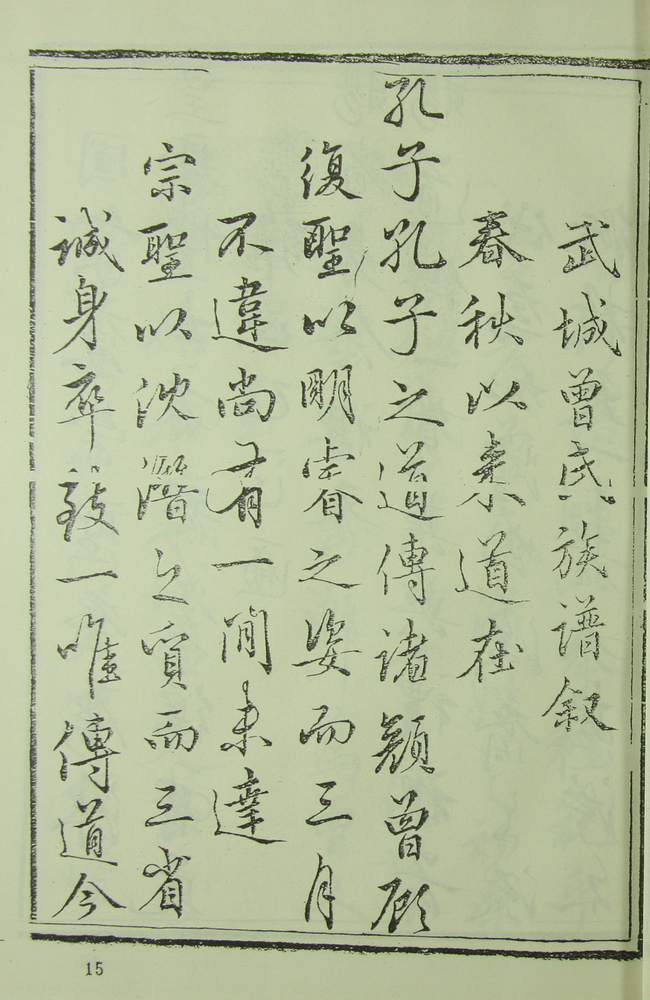 武城曾氏族譜叙
春秋以来道在
孔子孔子之道傳諸顏曾顧
復聖以明睿之姿而三月
不違尚有一間未達
宗聖以沈潛之質而三省
誠身卒致一唯傳道今
15